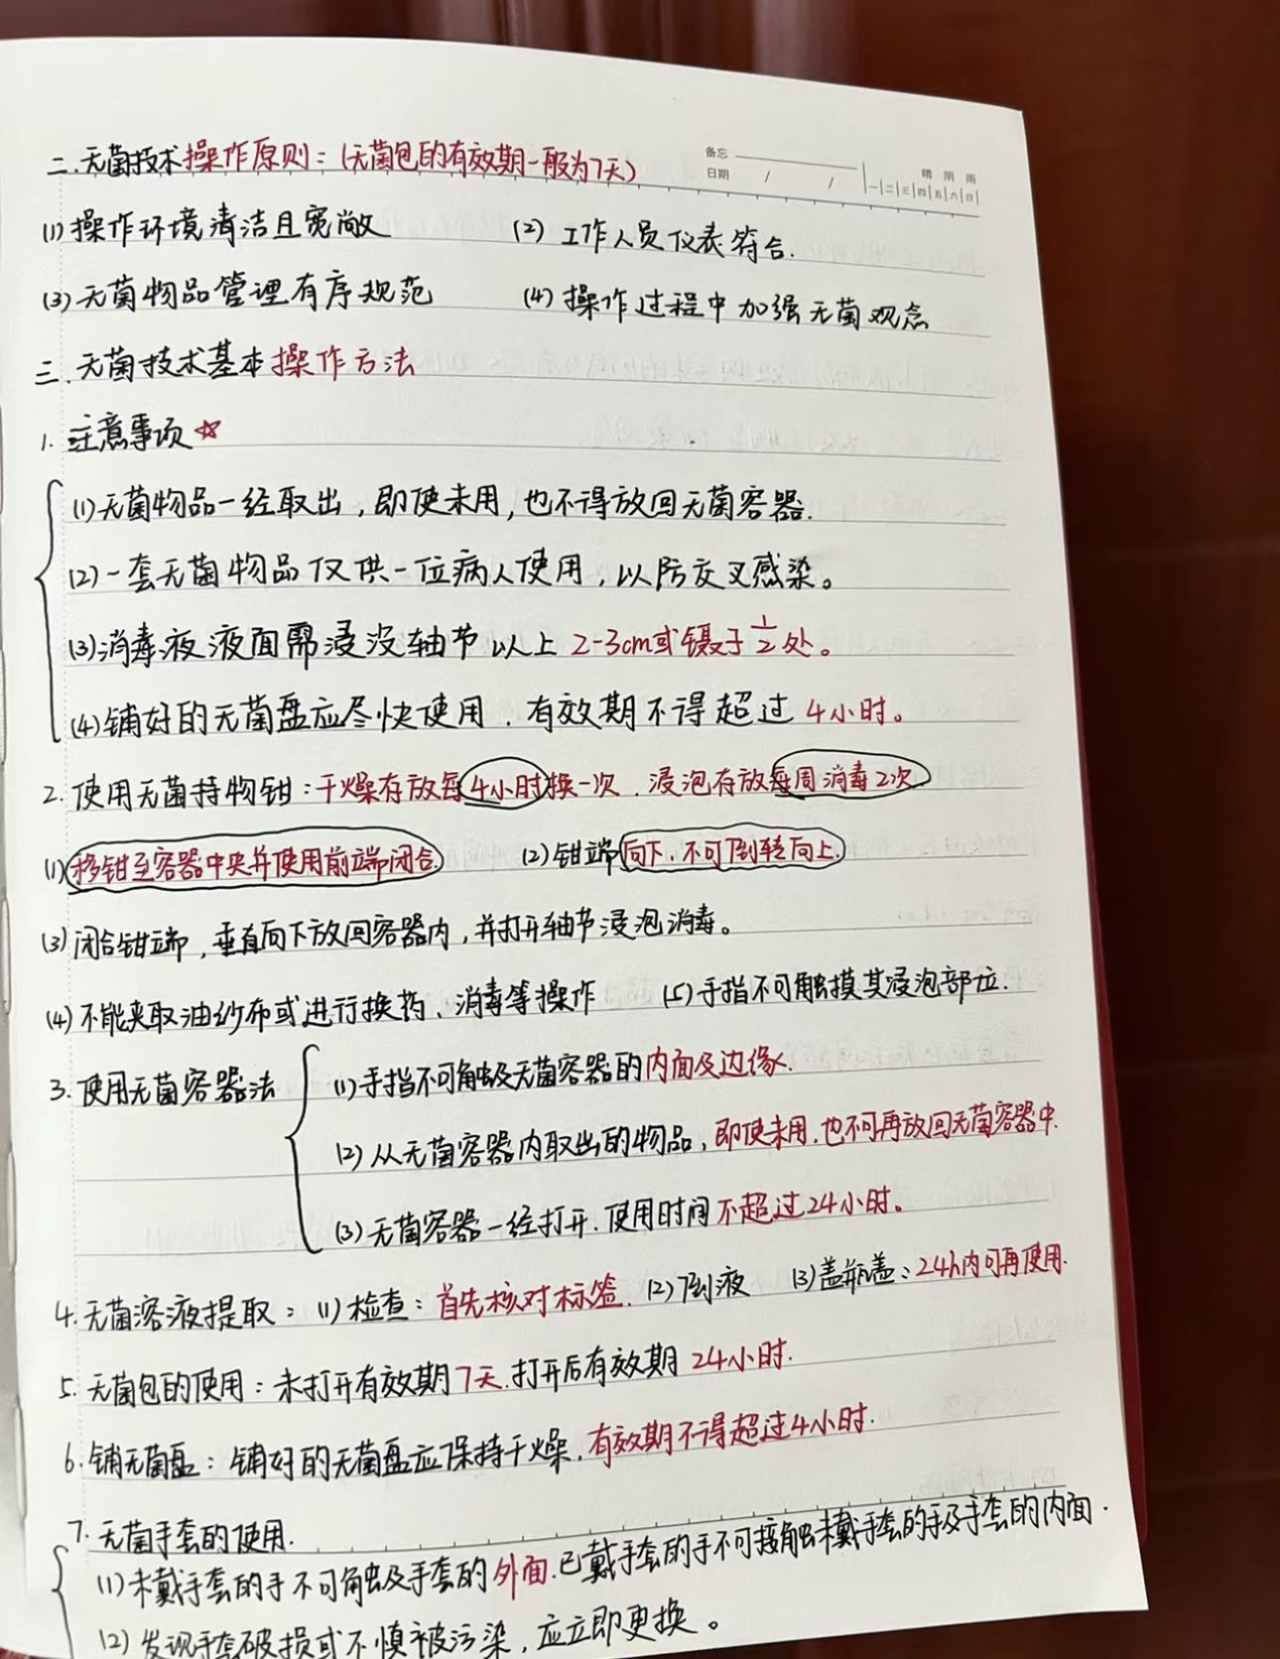 备忘
日期 / / 晴 阴 雨
一 二 三 四 五 六 日
二.无菌技术操作原则：(无菌包的有效期一般为7天)
(1)操作环境清洁且宽敞 (2)工作人员仪表符合.
(3)无菌物品管理有序规范 (4)操作过程中加强无菌观念
三.无菌技术基本操作方法
1.注意事项☆
(1)无菌物品一经取出,即使未用,也不得放回无菌容器.
(2)一套无菌物品仅供一位病人使用,以防交叉感染。
(3)消毒液液面需浸没轴节以上2-3cm或镊子1/2处。
(4)铺好的无菌盘应尽快使用,有效期不得超过4小时。
2.使用无菌持物钳：干燥存放每4小时换一次.浸泡存放每周消毒2次
(1)移钳至容器中央并使用前端闭合 (2)钳端向下.不可倒转向上.
(3)闭合钳端,垂直向下放回容器内,并打开轴节浸泡消毒。
(4)不能夹取油纱布或进行换药、消毒等操作 (5)手指不可触摸其浸泡部位.
3.使用无菌容器法 (1)手指不可触及无菌容器的内面及边缘.
(2)从无菌容器内取出的物品,即使未用.也不可再放回无菌容器中.
(3)无菌容器一经打开.使用时间不超过24小时。
4.无菌溶液提取：(1)检查：首先核对标签.(2)倒液 (3)盖瓶盖：24h内可再使用.
5.无菌包的使用：未打开有效期7天.打开后有效期24小时.
6.铺无菌盘：铺好的无菌盘应保持干燥,有效期不得超过4小时.
7.无菌手套的使用.
(1)未戴手套的手不可触及手套的外面.已戴手套的手不可接触未戴手套的手及手套的内面.
(2)发现手套破损或不慎被污染,应立即更换。